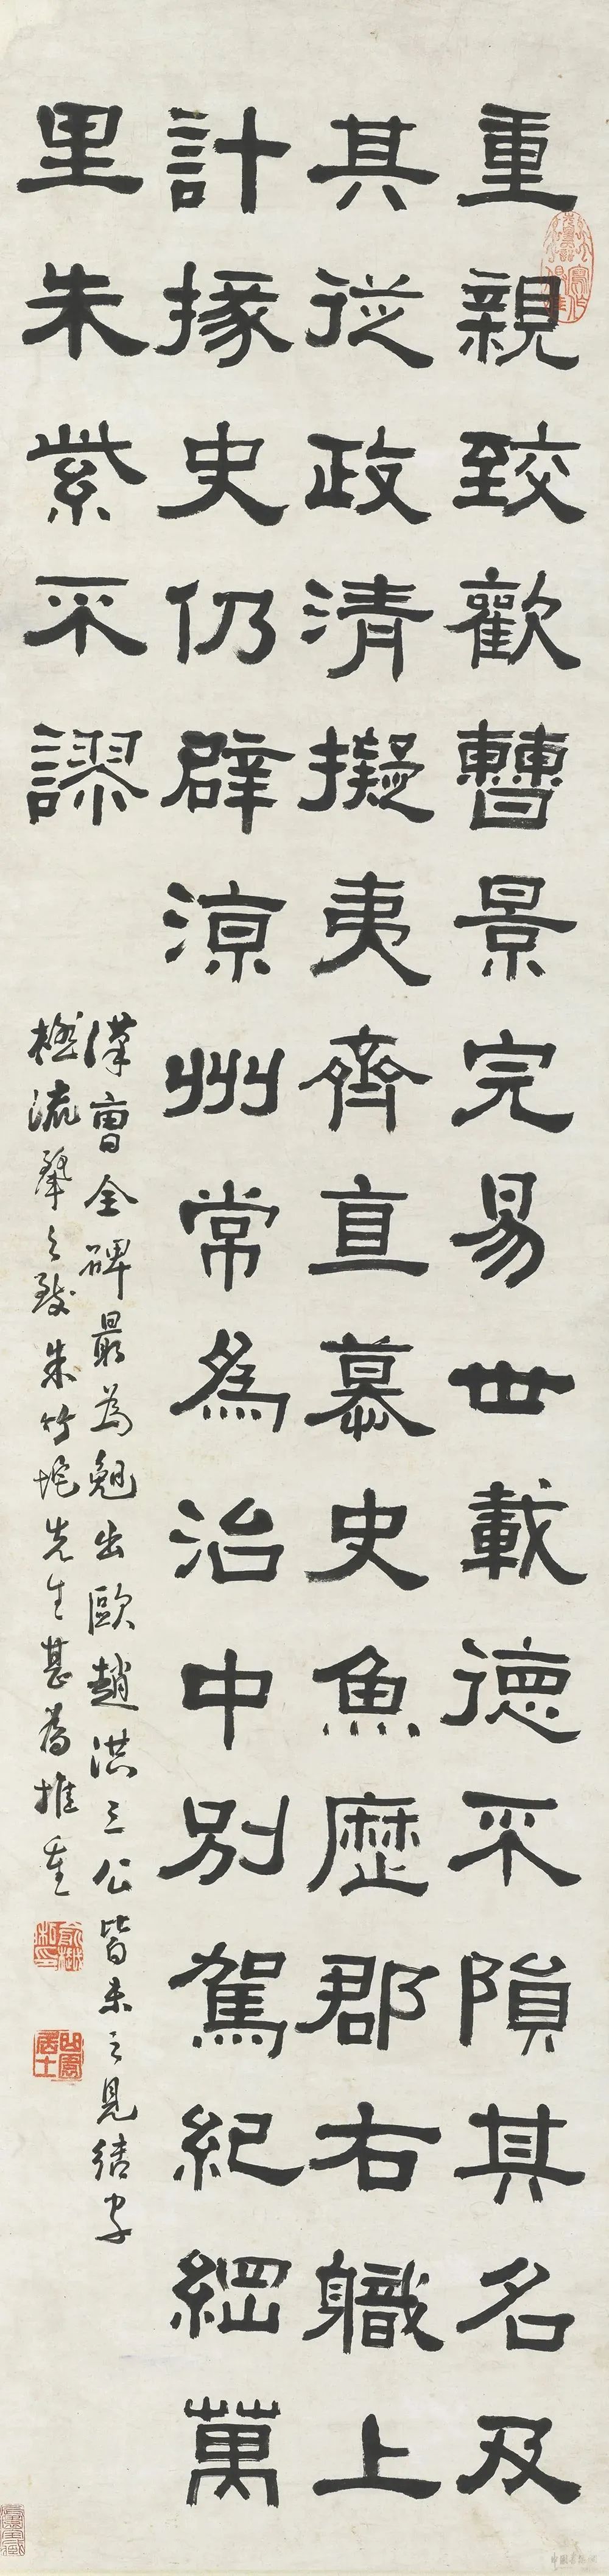 重親致歡曹景完易世載德不隕其名及
其從政清擬夷齊直慕史魚歷郡右職上
計掾史仍辟涼州常為治中別駕紀綱萬
里朱紫不謬
漢曹全碑最為晚出歐趙洪三公皆未之見結字
極流之致朱竹垞先生甚為推重
俞樾私印
曲園居士